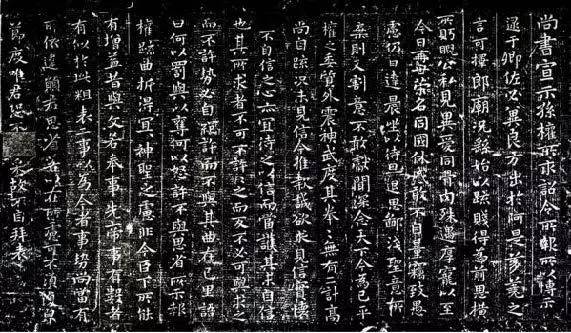 尚書宣示孫權所求詔令所報所以博示
逮于卿佐必冀良方出於阿是芻蕘之
言可擇郎廟況繇始以疏賤得為前恩橫
所盼睨公私見異愛同骨肉殊遇厚寵以至
今日再世榮名同國休慼敢不自量竊致愚
慮仍日達晨坐以待旦退思鄙淺聖意所
棄則又割意不敢獻聞深念天下今為已平
權之委質外震神武度其拳々無有二計高
尚自疏況未見信今推款誠欲求見信實懷
不自信之心亦宜待之以信而當護其未自信
也其所求者不可不許々之而反不必可與求之
而不許勢必自絕許而不與其曲在己里語
曰何以罰與以奪何以怒許不與思省所示報
權疏曲折得宜々神聖之慮非今臣下所能
有增益昔與文若奉事先帝事有數者
有似於此粗表二事以為今者事勢尚當有
所依違願君思省若以在所慮可不須復
節度唯君恐不采故不自拜表